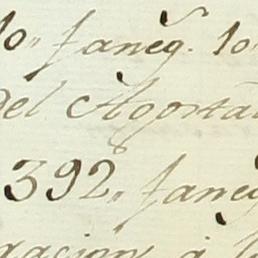 10,, faneg.s 10
del Agosta
392,, faneg
gacion, a l